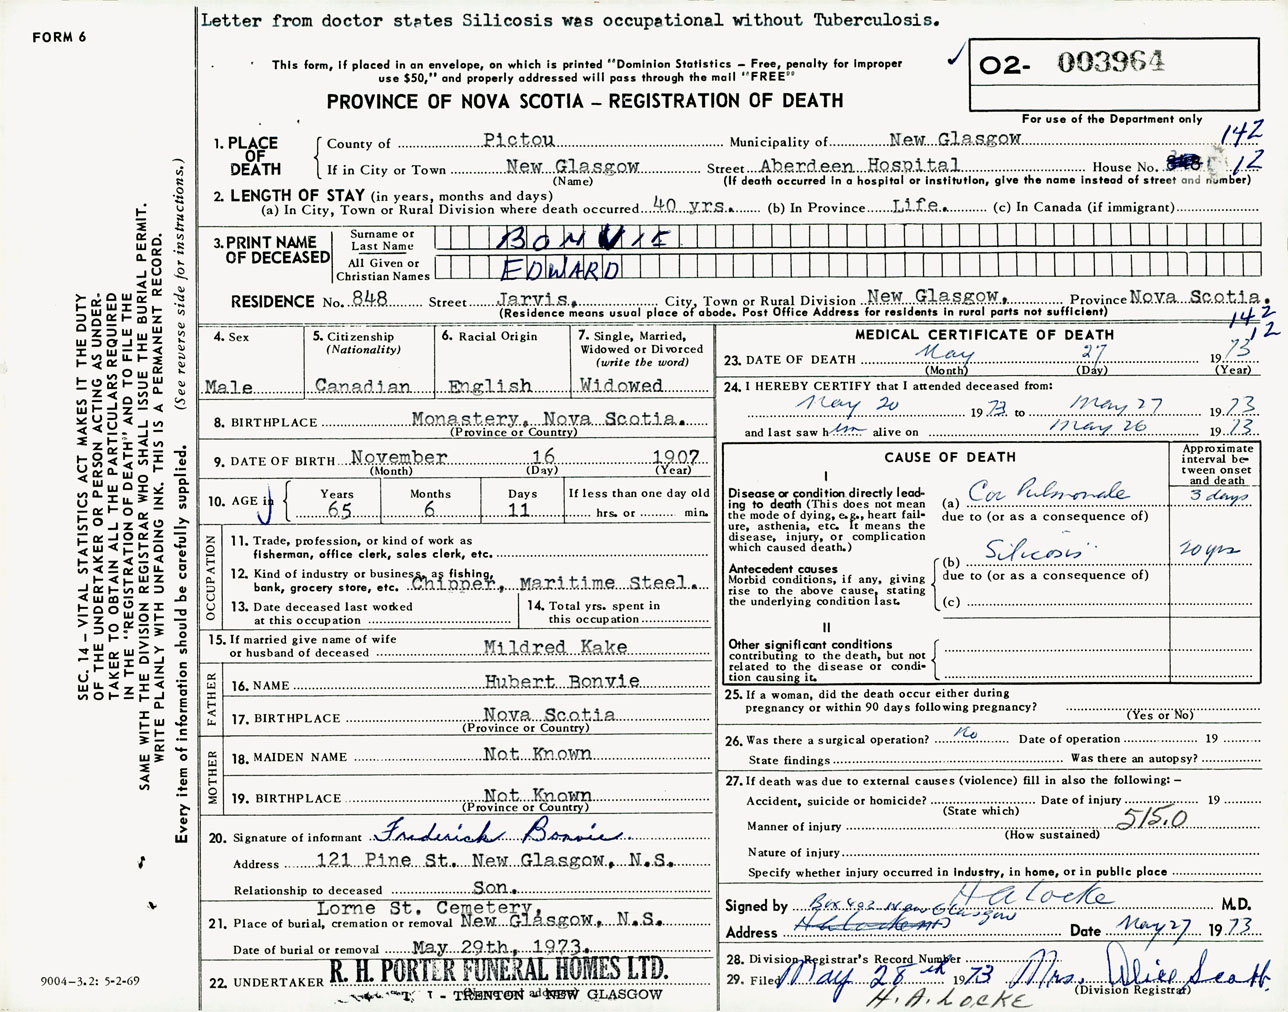 Letter from doctor states Silicosis was occupational without Tuberculosis.
FORM 6
This form, if placed in an envelope, on which is printed "Dominion Statistics – Free, penalty for improper
use $50," and properly addressed will pass through the mail "FREE"
O2- 003964
PROVINCE OF NOVA SCOTIA – REGISTRATION OF DEATH
For use of the Department only
1. PLACE OF DEATH
County of Pictou Municipality of New Glasgow 142
If in City or Town New Glasgow Street Aberdeen Hospital House No. 848 12
(Name) (If death occurred in a hospital or institution, give the name instead of street and number)
2. LENGTH OF STAY (in years, months and days)
(a) In City, Town or Rural Division where death occurred 40 yrs. (b) In Province Life. (c) In Canada (if immigrant)
3. PRINT NAME OF DECEASED
Surname or Last Name BONVIE
All Given or Christian Names EDWARD
RESIDENCE No. 848 Street Jarvis, City, Town or Rural Division New Glasgow, Province Nova Scotia.
(Residence means usual place of abode. Post Office Address for residents in rural parts not sufficient)
142
12
4. Sex
Male
5. Citizenship
(Nationality)
Canadian
6. Racial Origin
English
7. Single, Married,
Widowed or Divorced
(write the word)
Widowed
8. BIRTHPLACE Monastery, Nova Scotia.
(Province or Country)
9. DATE OF BIRTH November 16 1907
(Month) (Day) (Year)
10. AGE in
Years Months Days If less than one day old
65 6 11 hrs. or min.
OCCUPATION
11. Trade, profession, or kind of work as
fisherman, office clerk, sales clerk, etc.
12. Kind of industry or business, as fishing,
bank, grocery store, etc. Chipper, Maritime Steel.
13. Date deceased last worked
at this occupation
14. Total yrs. spent in
this occupation
15. If married give name of wife
or husband of deceased Mildred Kake
FATHER
16. NAME Hubert Bonvie
17. BIRTHPLACE Nova Scotia
(Province or Country)
MOTHER
18. MAIDEN NAME Not Known
19. BIRTHPLACE Not Known
(Province or Country)
20. Signature of informant Frederick Bonvie
Address 121 Pine St. New Glasgow, N.S.
Relationship to deceased Son.
Lorne St. Cemetery,
21. Place of burial, cremation or removal New Glasgow, N.S.
Date of burial or removal May 29th, 1973.
22. UNDERTAKER R. H. PORTER FUNERAL HOMES LTD.
TRENTON - NEW GLASGOW
MEDICAL CERTIFICATE OF DEATH
23. DATE OF DEATH May 27 1973
(Month) (Day) (Year)
24. I HEREBY CERTIFY that I attended deceased from:
May 20 1973 to May 27 1973
and last saw him alive on May 26 1973
CAUSE OF DEATH
Approximate
interval be-
tween onset
and death
I
Disease or condition directly lead-
ing to death (This does not mean
the mode of dying, e.g., heart fail-
ure, asthenia, etc. It means the
disease, injury, or complication
which caused death.)
(a) Cor Pulmonale 3 days
due to (or as a consequence of)
Antecedent causes
Morbid conditions, if any, giving
rise to the above cause, stating
the underlying condition last.
(b) Silicosis 20 yrs
due to (or as a consequence of)
(c)
II
Other significant conditions
contributing to the death, but not
related to the disease or condi-
tion causing it.
25. If a woman, did the death occur either during
pregnancy or within 90 days following pregnancy?
(Yes or No)
26. Was there a surgical operation? No Date of operation 19
State findings Was there an autopsy?
27. If death was due to external causes (violence) fill in also the following: –
Accident, suicide or homicide? Date of injury 19
(State which)
Manner of injury 515.0
(How sustained)
Nature of injury
Specify whether injury occurred in industry, in home, or in public place
Signed by H A Locke M.D.
Box 402 New Glasgow
Address Date May 27 1973
28. Division Registrar's Record Number
29. Filed May 28th 1973 Mrs. Alice Scott
(Division Registrar)
H. A. LOCKE
SEC. 14 – VITAL STATISTICS ACT MAKES IT THE DUTY
OF THE UNDERTAKER OR PERSON ACTING AS UNDER-
TAKER TO OBTAIN ALL THE PARTICULARS REQUIRED
IN THE "REGISTRATION OF DEATH" AND TO FILE THE
SAME WITH THE DIVISION REGISTRAR WHO SHALL ISSUE THE BURIAL PERMIT.
WRITE PLAINLY WITH UNFADING INK. THIS IS A PERMANENT RECORD.
Every item of information should be carefully supplied. (See reverse side for instructions.)
9004-3.2: 5-2-69